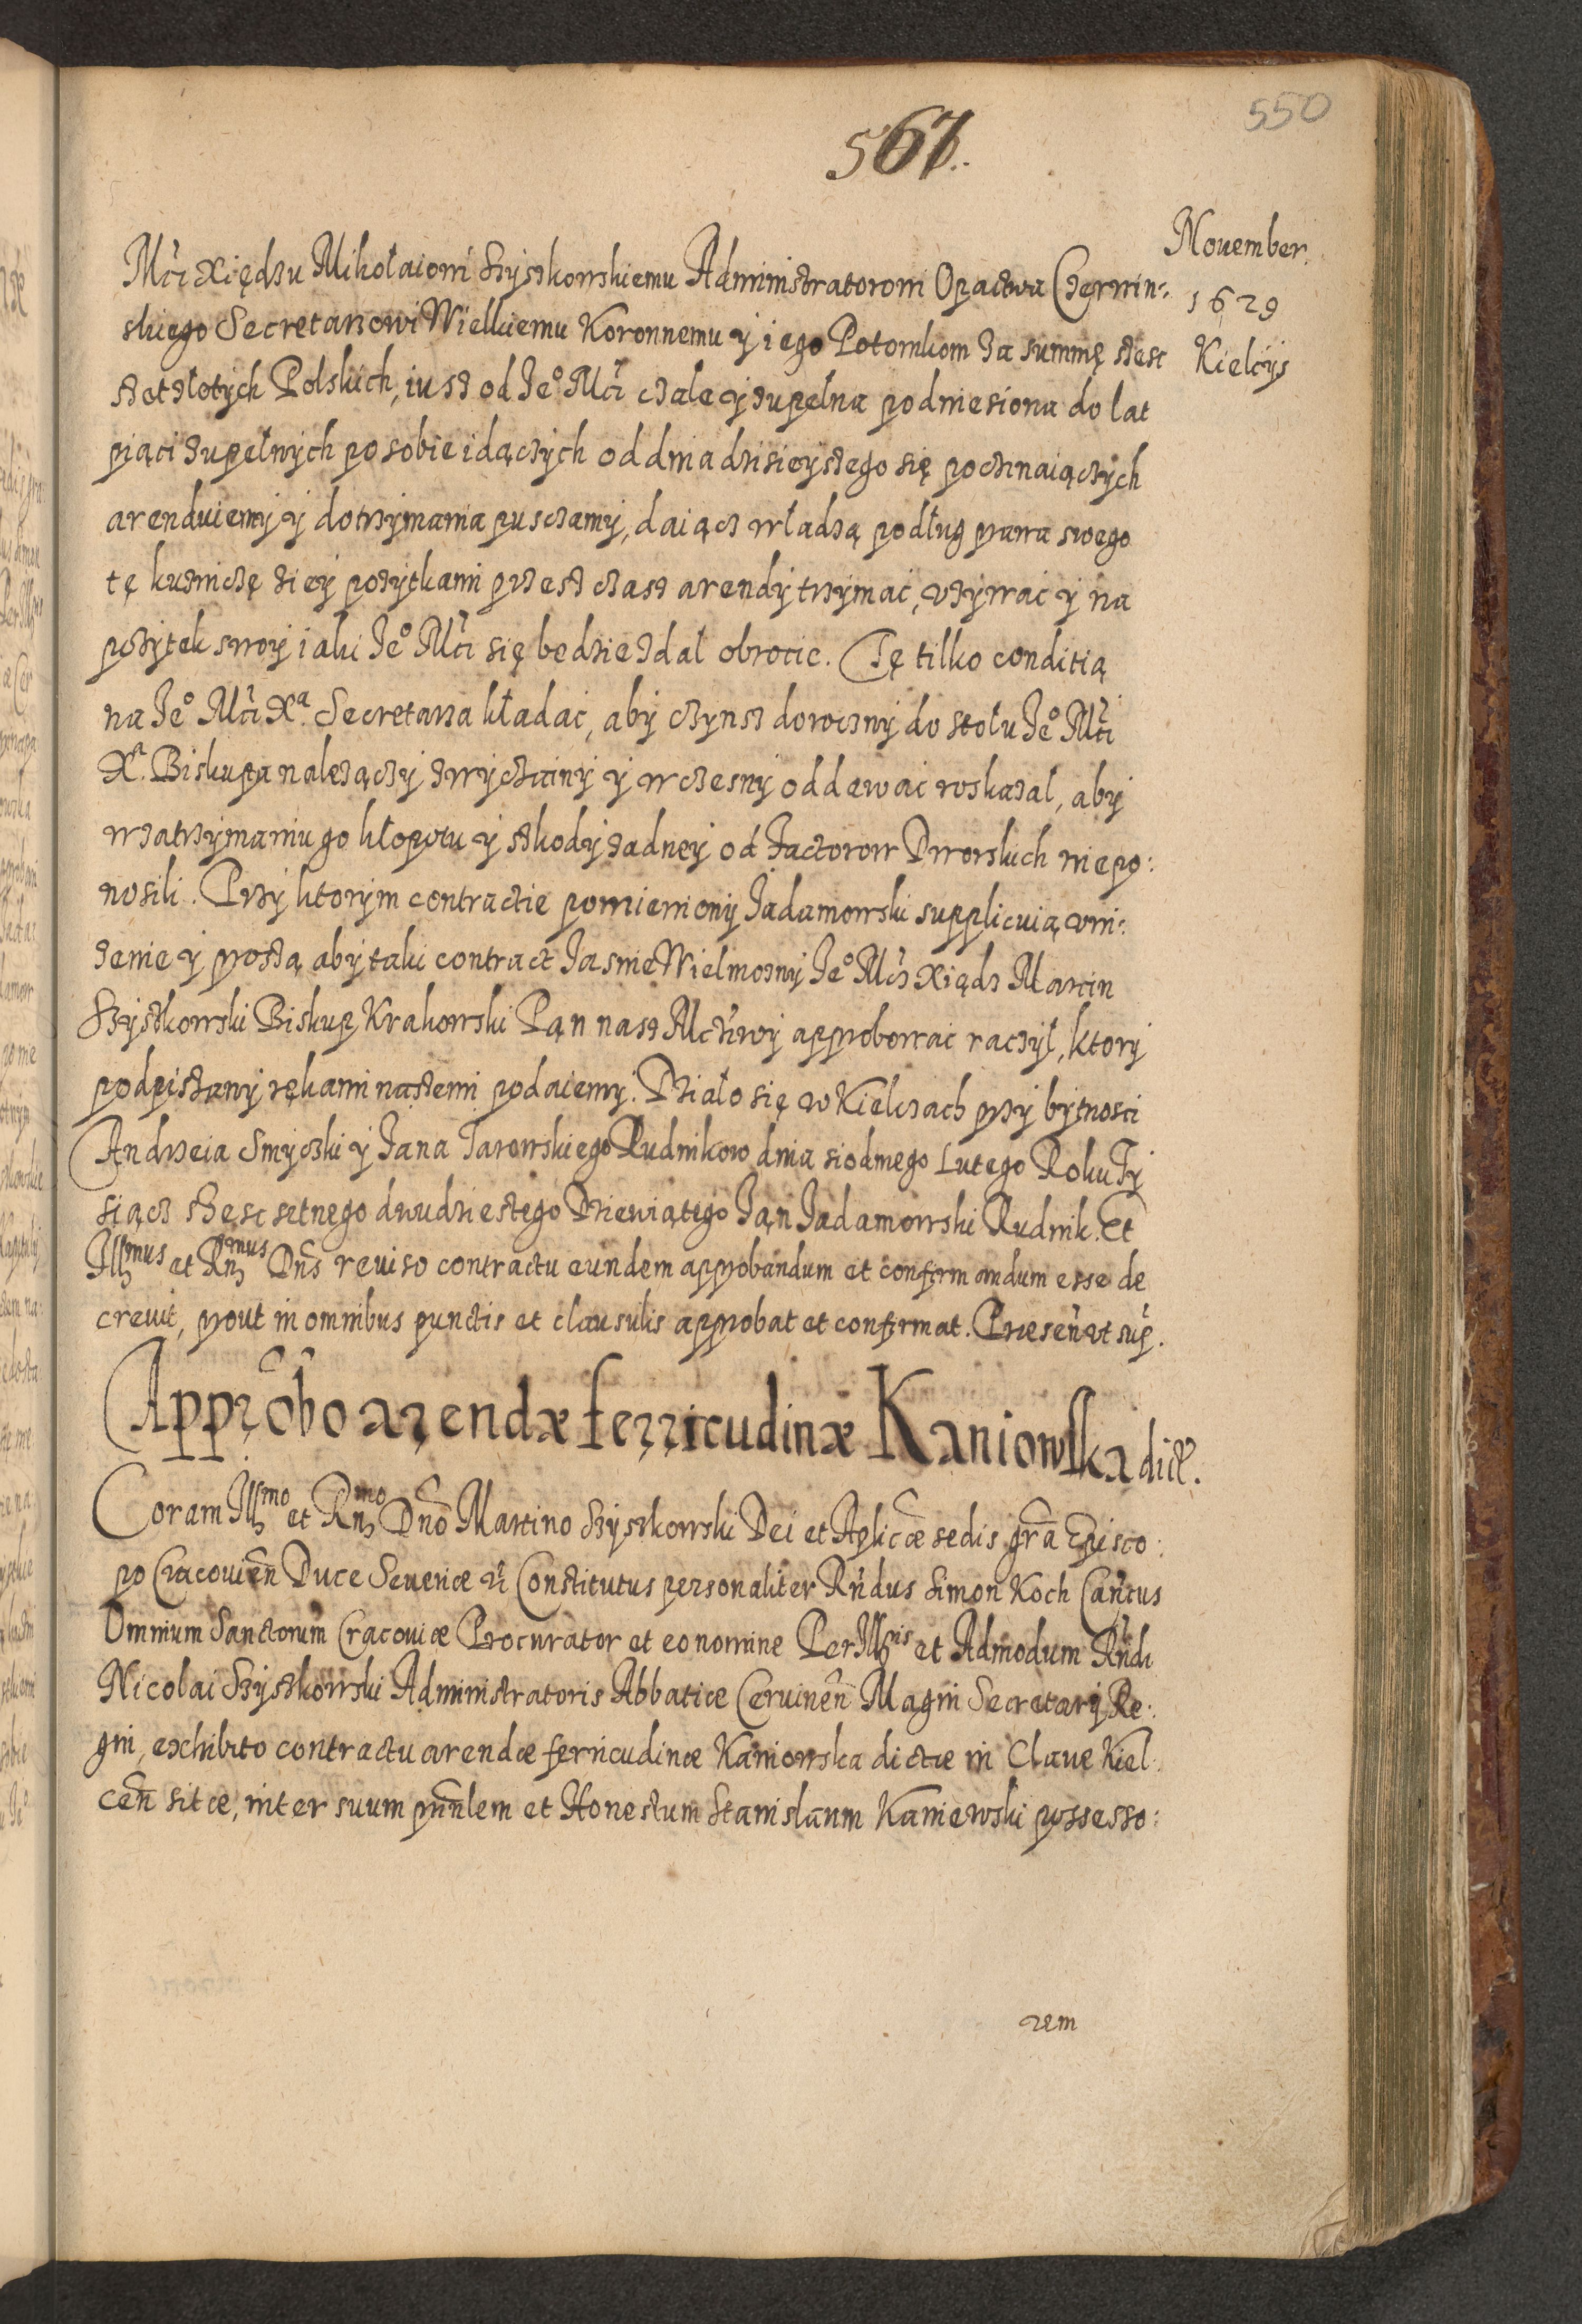 550
567.
November.
1629
Kielcys
Mci Xiędzu Mikołaiowi Szyszkowskiemu Administratorowi Opactwa Czerwin:
skiego Secretarzowi Wielkiemu Koronnemu y iego Potomkom za summę szesc
szet złotych Polskich, iusz od Jeo Mci czale y zupełna podniesiona do lat
piąci zupełnych po sobie idączych od dnia dzisieyszego się poczinaiączych
arenduiemy y dotrzymania pusczamy, daiącz władzą podług prawa swego
tę kuznicę z iey pozytkami przesz czasz arendy trzymac, vzywac y na
pozytek swoy iaki Jeo Mci się bedzie zdal obrocic. Tę tilko conditią
na Jeo Mci Xa. Secretarza kładac, aby czynsz doroczny do stołu Jeo Mci
Xa. Biskupa nalezączy zwyczainy y wczesny oddawac roskazal, aby
w zatrzymaniu go kłopotu y szkody zadney od Factorow Dworskich niepo:
nosili. Przy ktorym contractie pomieniony Jadamowski supplicuią vni:
zenie y proszą aby taki contract Jasnie Wielmozny Jeo Mcz Xiądz Marcin
Szyszkowski Biskup Krakowski Pąn nasz Mciwy approbowac raczył, ktory
podpiszany rękami naszemi podaiemy. Działo się w Kielczach przy bytnosci
Andrzeia Smyczki y Jana Jarowskiego Rudnikow dnia siodmego Lutego Roku Ty
siącz szesc setnego dwudziestego Dziewiątego Jąn Jadamowski Rudnik. Et
Illmus et Rnmus Dns reuiso contractu eundem approbandum et confirmandum esse de
creuit, prout in omnibus punctis et clausulis approbat et confirmat. Præsentt sup.
Approbo arendæ ferricudinæ Kaniowska dict.
Coram Illmo et Rnmo Dno Martino Szyszkowski Dei et Aplicæ sedis gra Episco:
po Cracouien Duce Seueriæ et Constitutus personaliter Rndus Simon Koch Cantus
Omnium Sanctorum Cracouiæ Procurator et eo nomine Per Illris et Admodum Rndi
Nicolai Szyszkowski Administratoris Abbatiæ Ceruinen Magni Secretarij Re:
gni, exhibito contractu arendæ ferricudinæ Kaniowska dictæ in Claue Kiel:
cen sitæ, inter suum prinlem et Honestum Stanislaum Kaniewski possesso:
rem